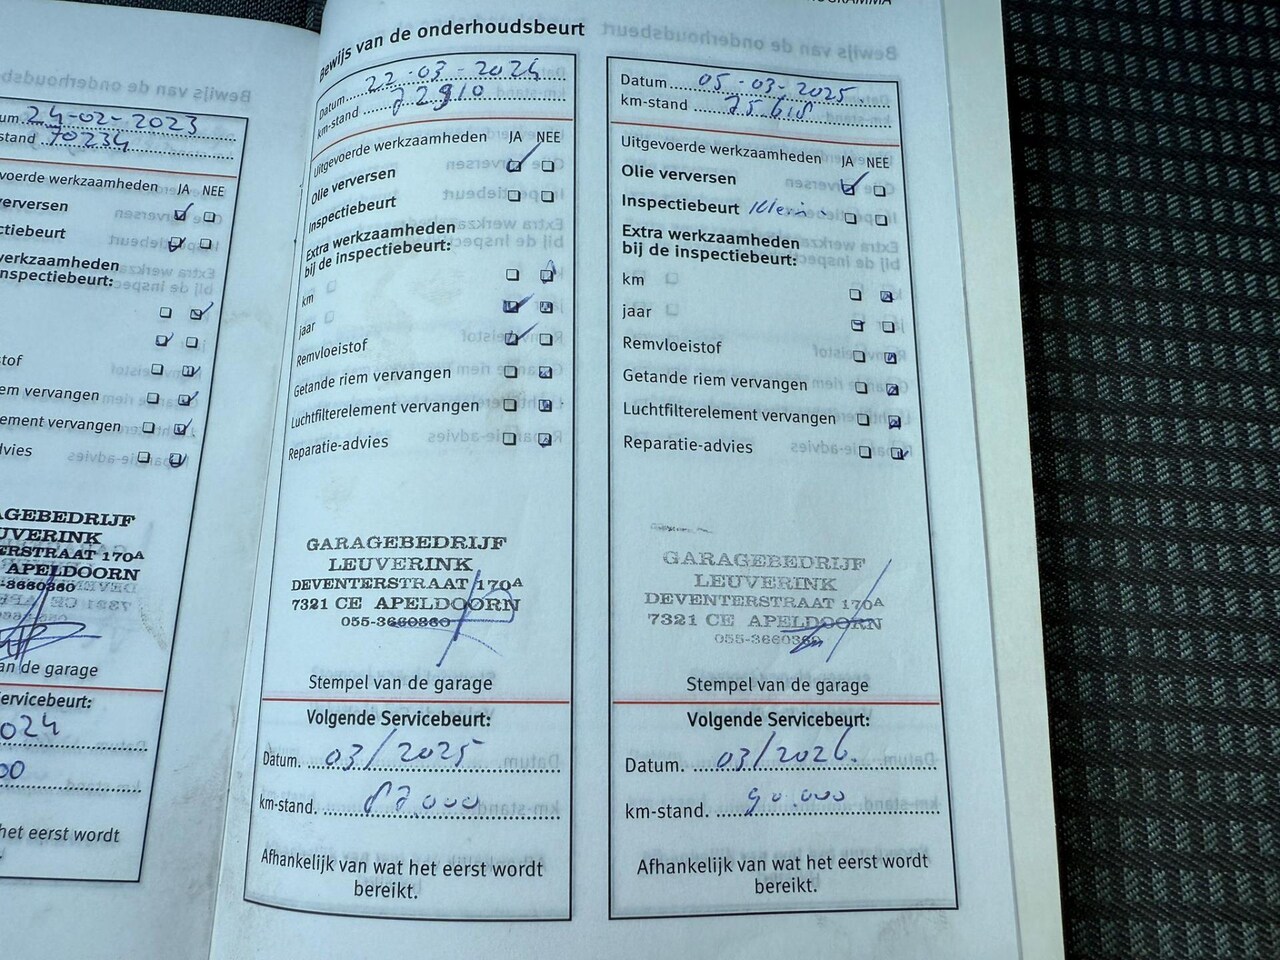 Bewijs
um. 24-02-2023
stand 70234
voerde werkzaamheden JA NEE
verversen
ctiebeurt
werkzaamheden
inspectiebeurt:
stof
iem vervangen
ement vervangen
dvies
AGEBEDRIJF
UVERINK
ERSTRAAT 170A
APELDOORN
-3660360
an de garage
Servicebeurt:
024
00
het eerst wordt
Bewijs van de onderhoudsbeurt
Datum. 22-03-2024
km-stand 72910
Uitgevoerde werkzaamheden JA NEE
Olie verversen
Inspectiebeurt
Extra werkzaamheden
bij de inspectiebeurt:
km
jaar
Remvloeistof
Getande riem vervangen
Luchtfilterelement vervangen
Reparatie-advies
GARAGEBEDRIJF
LEUVERINK
DEVENTERSTRAAT 170A
7321 CE APELDOORN
055-3660360
Stempel van de garage
Volgende Servicebeurt:
Datum. 03/2025
km-stand. 87.000
Afhankelijk van wat het eerst wordt
bereikt.
Datum 05-03-2025.
km-stand 75618
Uitgevoerde werkzaamheden JA NEE
Olie verversen
Inspectiebeurt Klein
Extra werkzaamheden
bij de inspectiebeurt:
km
jaar
Remvloeistof
Getande riem vervangen
Luchtfilterelement vervangen
Reparatie-advies
GARAGEBEDRIJF
LEUVERINK
DEVENTERSTRAAT 170A
7321 CE APELDOORN
055-3660360
Stempel van de garage
Volgende Servicebeurt:
Datum. 03/2026.
km-stand. 90.000
Afhankelijk van wat het eerst wordt
bereikt.